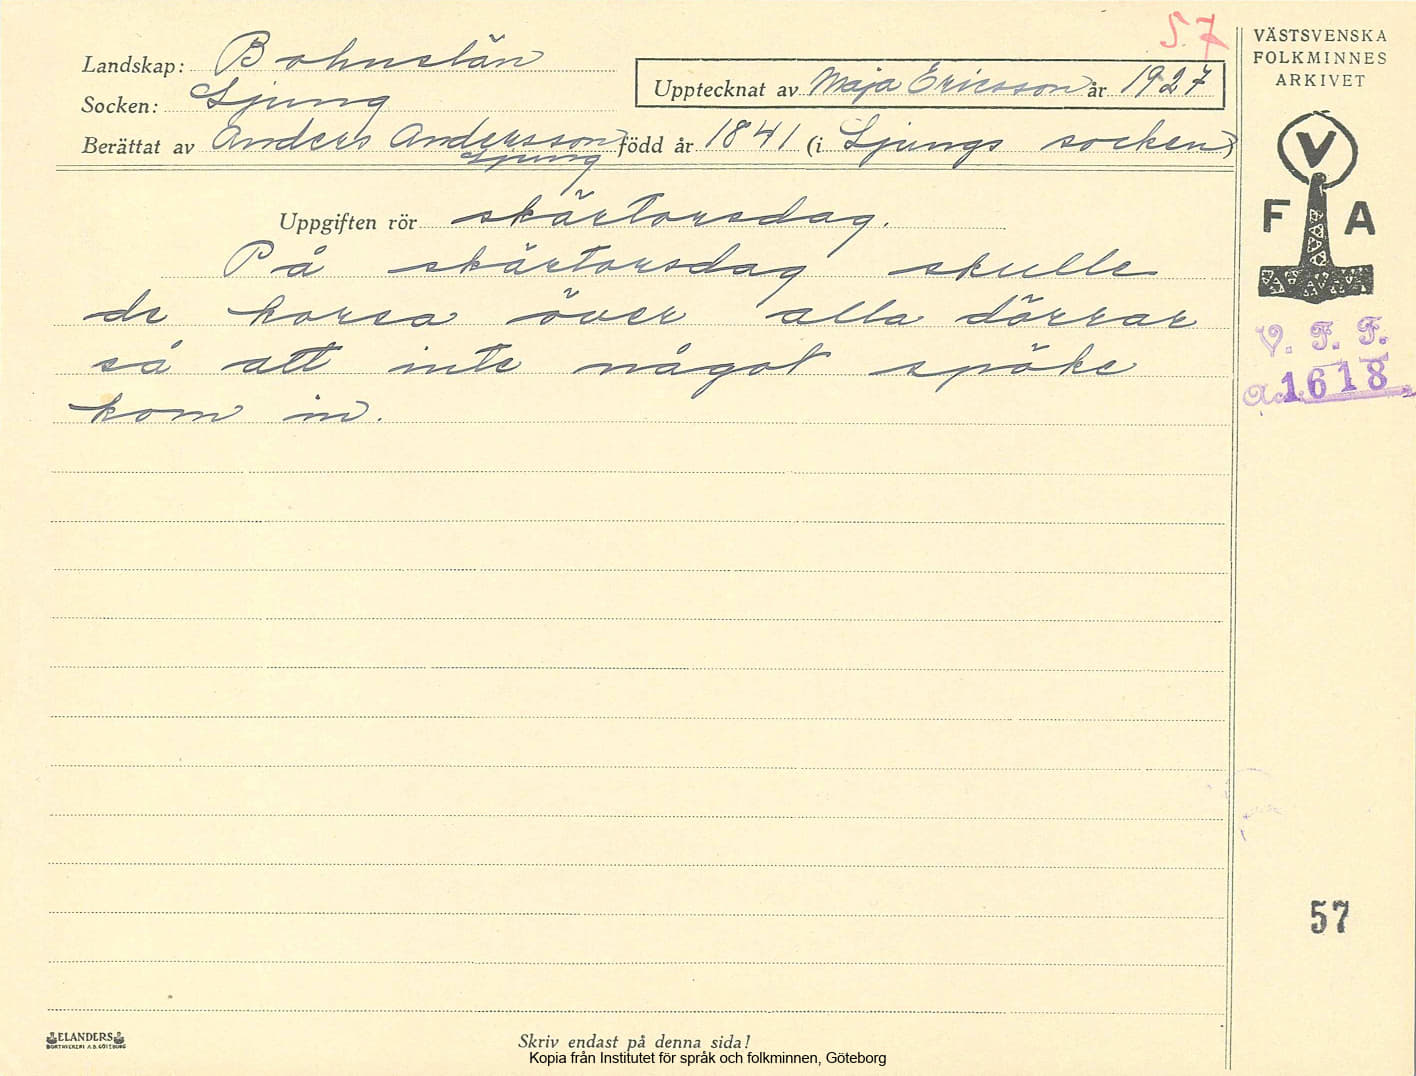 S. 7
Landskap: Bohuslän
Socken: Ljung
Upptecknat av Maja Ericsson år 1927
Berättat av Anders Andersson född år 1841 (i Ljungs socken)
Ljung
Uppgiften rör skärtorsdag.
På skärtorsdag skulle
de korsa över alla dörrar
så att inte något spöke
kom in.
VÄSTSVENSKA
FOLKMINNES
ARKIVET
V
F A
V. F. F.
Acc. 1618
57
ELANDERS
BOKTRYCKERI A.B. GÖTEBORG
Skriv endast på denna sida!
Kopia från Institutet för språk och folkminnen, Göteborg